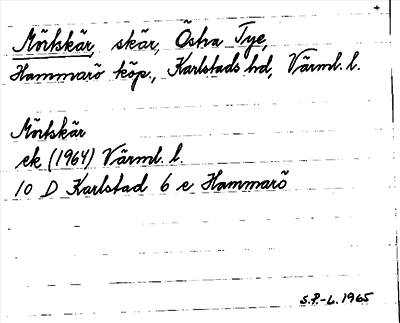 Mörtskär, skär, Östra Tye,
Hammarö köp., Karlstads hd, Värml. l.
Mörtskär
ek (1964) Värml. l.
10 D Karlstad 6 e Hammarö
S.P.-L. 1965